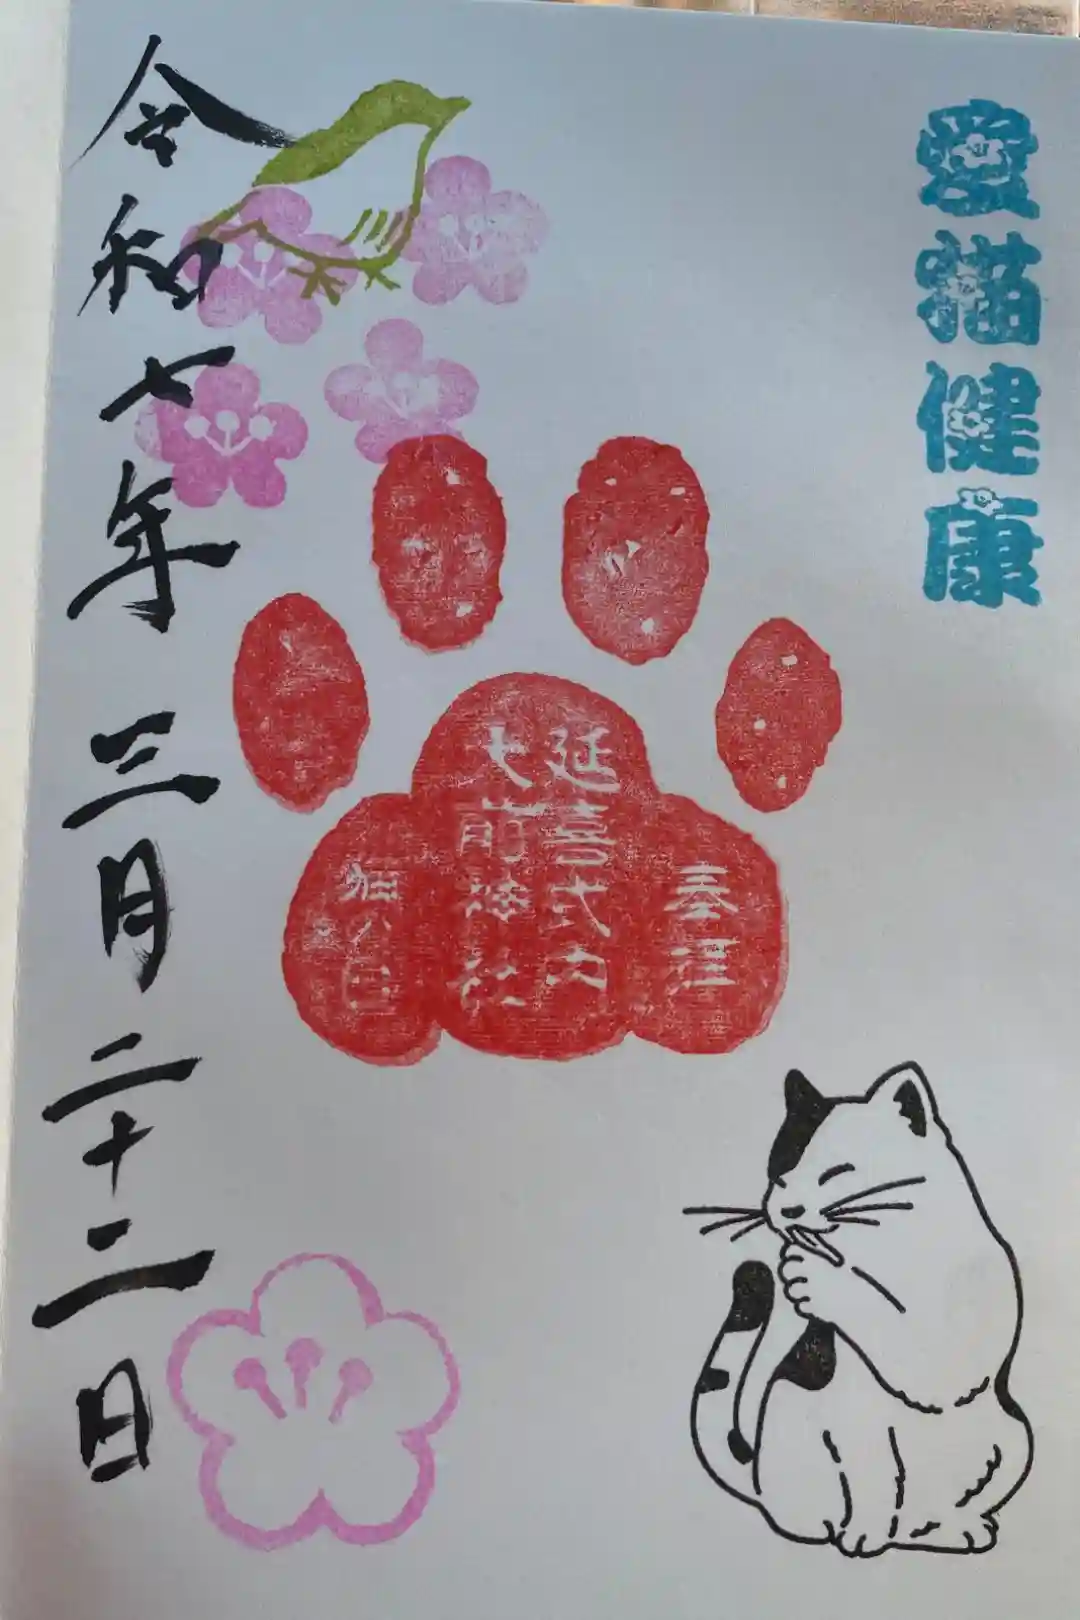 愛猫健康
奉拝
延喜式内
神社
令和七年三月二十二日